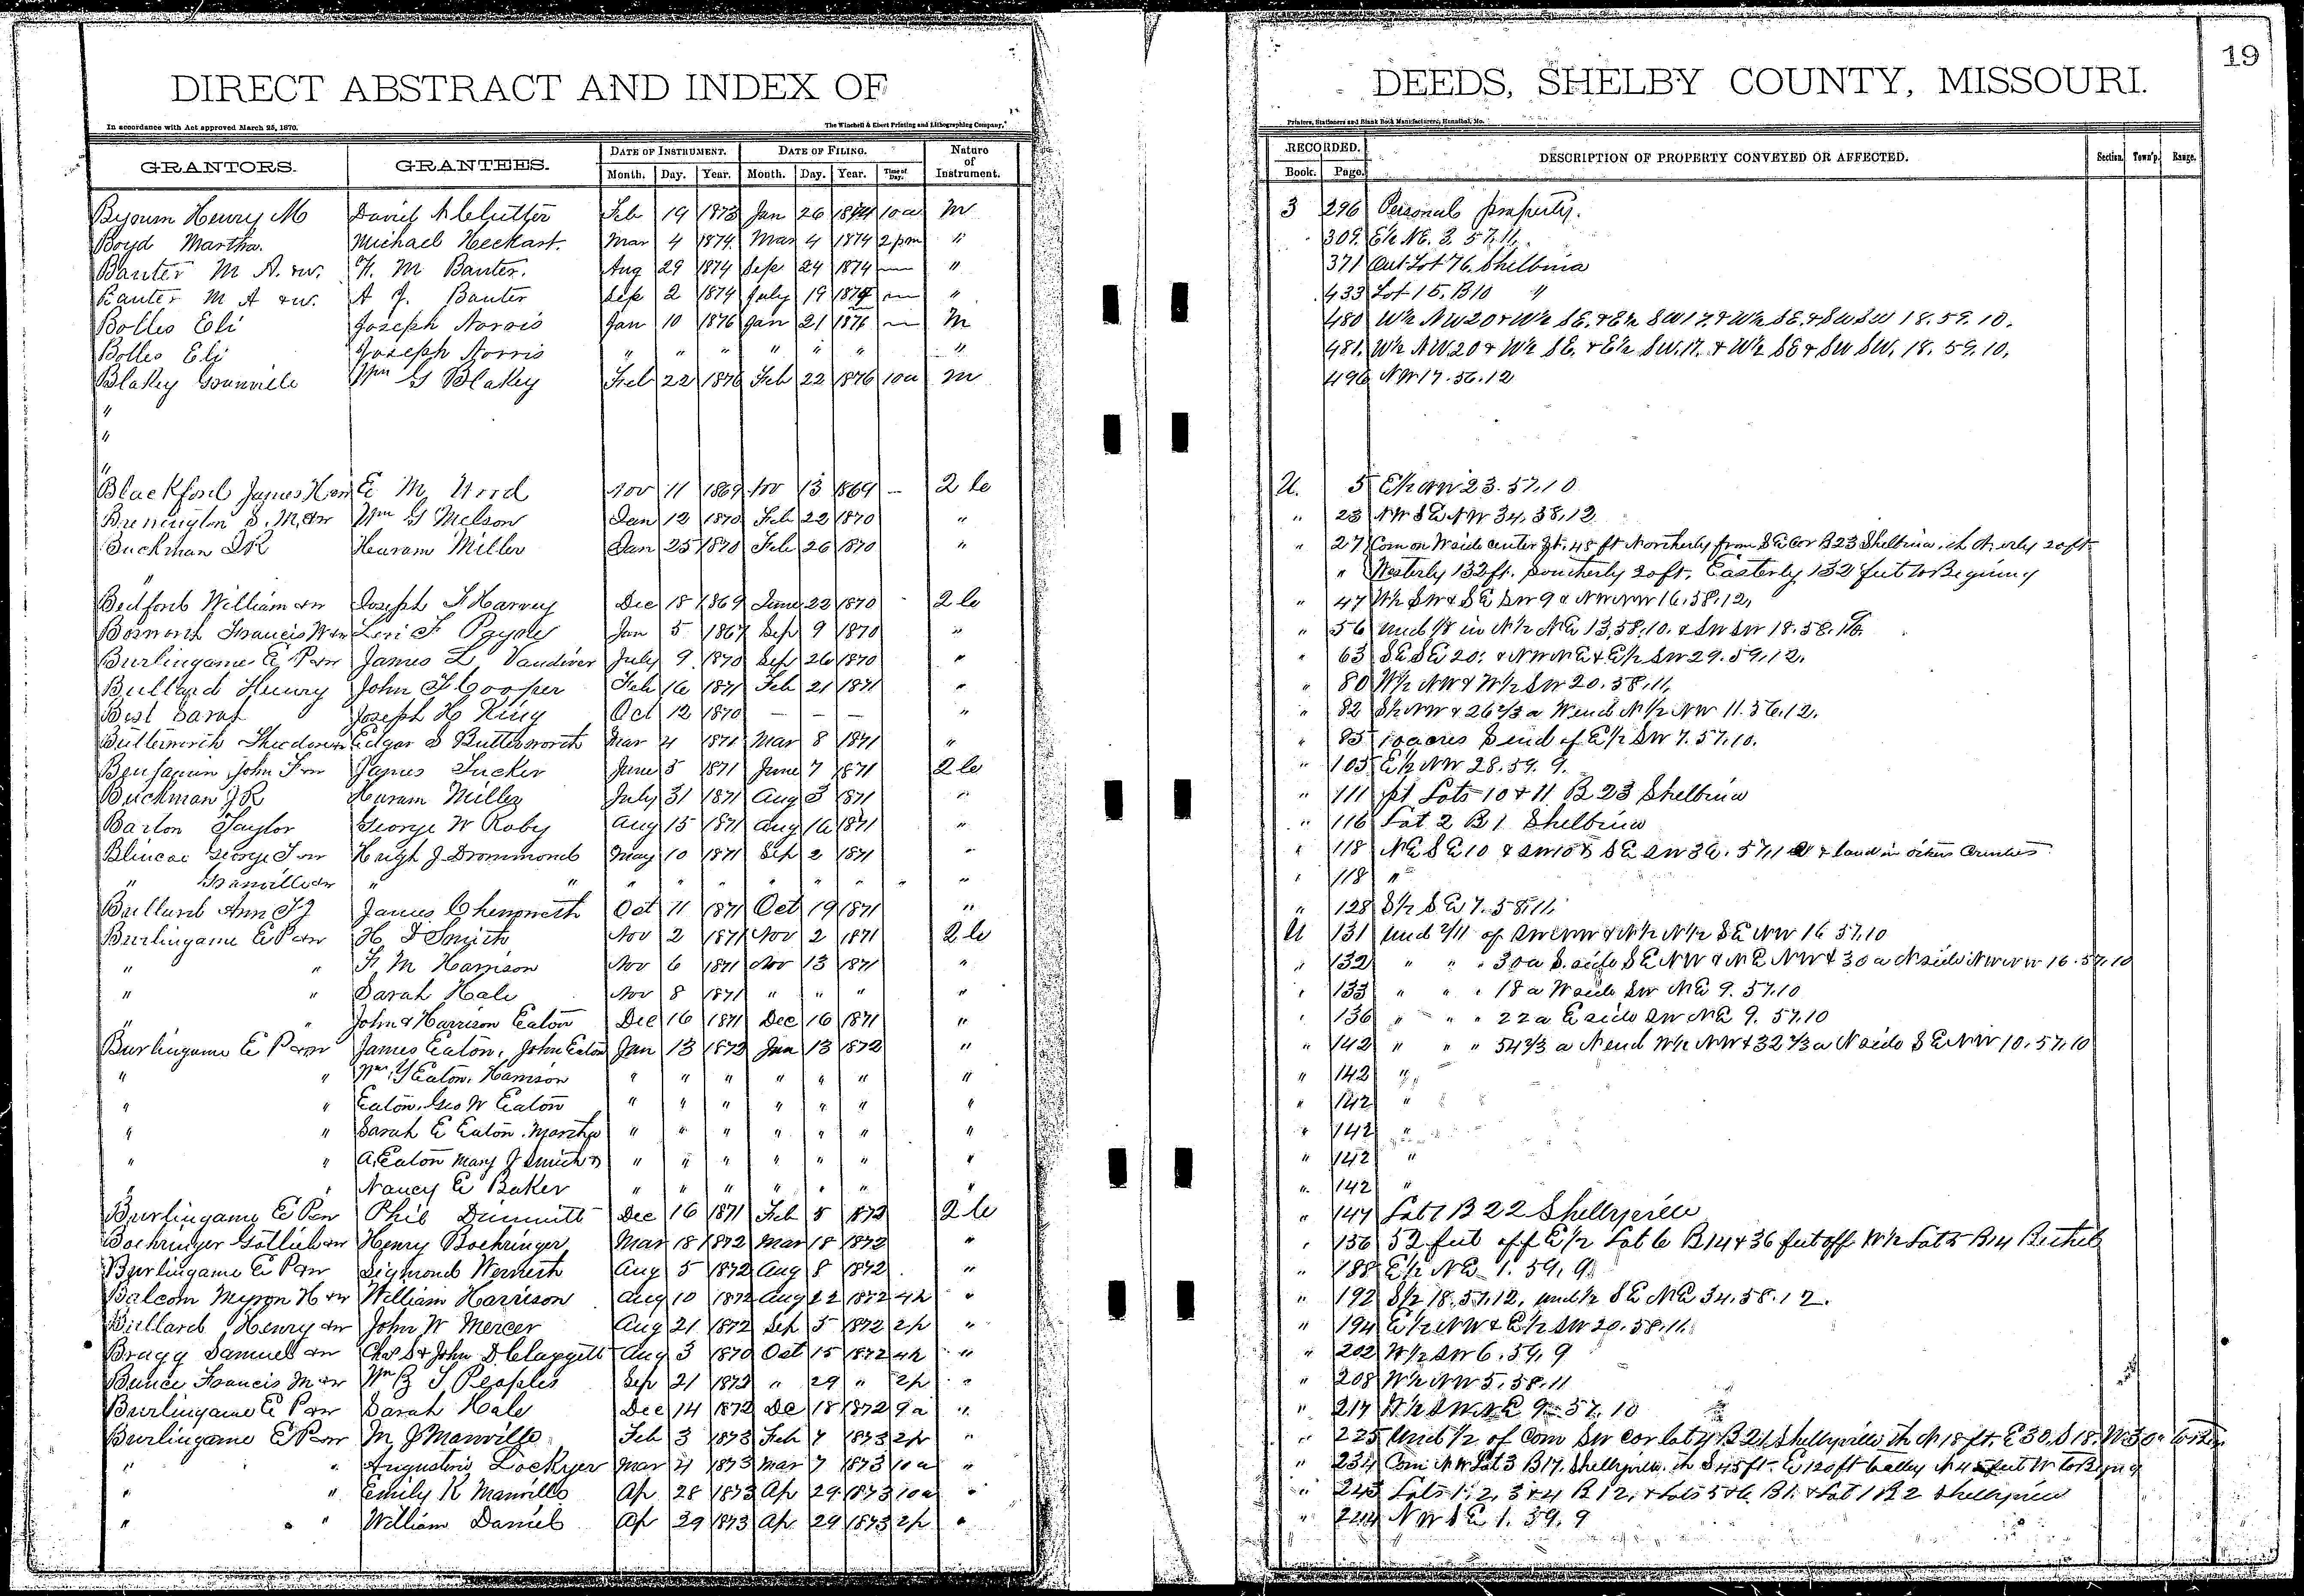 19
DIRECT ABSTRACT AND INDEX OF DEEDS, SHELBY COUNTY, MISSOURI.
In accordance with Act approved March 25, 1870. The Winchell & Ebert Printing and Lithographing Company, Printers, Stationers and Blank Book Manufacturers, Hannibal, Mo.
GRANTORS. GRANTEES. DATE OF INSTRUMENT. DATE OF FILING. Nature of Instrument. RECORDED. DESCRIPTION OF PROPERTY CONVEYED OR AFFECTED. Section. Town'p. Range.
Month. Day. Year. Month. Day. Year. Time of Day. Book. Page.
Byoum Henry M David A Clutter Feb 19 1873 Jan 26 1874 10a M 3 296 Personal property.
Boyd Martha. Michael Heckart. Mar 4 1874. Mar 4 1874 2pm " 309. E½ NE. 3. 57,11,
Banter M A. &w. F. M Banter. Aug 29 1874 Sep 24 1874 — " 371 Out Lot 76. Shelbina
Banter M A &w. A J. Banter Sep 2 1874 July 19 1874 — " 433 Lot 15, B10 "
Bolles Eli Joseph Norris Jan 10 1876 Jan 21 1876 — M 480 W½ NW 20 & W½ SE. & E½ SW 17. & W½ SE. & SW SW 18. 59. 10.
Bolles Eli Joseph Norris " " " " " " " 481. W½ NW. 20 & W½ SE. & E½ SW. 17. & W½ SE & SW SW. 18. 59. 10,
Blakey Granville Wm G Blakey Feb 22 1876 Feb 22 1876 10a M 496 NW 17. 56. 12
"
"
"
Blackford James H &w E M Wood Nov 11 1869 Nov 13 1869 — 2 le U. 5 E½ NW 23. 57,10
S. M, &w Wm G Melson Jan 12 1870 Feb 22 1870 " " 23 NW SE NW 34, 58, 12
Buckman J R Hiram Miller Jan 25 1870 Feb 26 1870 " " 27 Com on W side Center St. 48 ft Northerly from SE Cor B 23 Shelbina, th N. erly 20 ft.
" " Westerly 132 ft. Southerly 20 ft. Easterly 132 feet to Beginning
Bedford William &w Joseph F Harvey Dec 18 1869 June 22 1870 2 le " 47 W½ SW & SE SW 9 & NW NW 16, 58, 12,
Francis W &w Levi F Payne Jan 5 1867 Sep 9 1870 " " 56 und 1/8 in N½ NE 13, 58, 10. & SW SW 18. 58.
Burlingame E P &w James L Vandiver July 9 1870 Sep 26 1870 " " 63 SE SE 20. & NW NE & E½ SW 29. 59, 12.
Bullard Henry John F Cooper Feb 16 1871 Feb 21 1871 " " 80 W½ NW & W½ SW 20. 58. 11,
Best Sarah Joseph H King Oct 12 1870 — — — " " 82 S½ NW & 26⅔ a W end N½ NW 11. 56. 12.
Butterworth Theodore &w Edgar S Butterworth Mar 4 1871 Mar 8 1871 " " 85 10 acres S end of E½ SW 7. 57. 10.
Benjamin John F &w James Tucker June 5 1871 June 7 1871 2 le " 105 E½ NW 28. 59. 9.
Buckman J R Hiram Miller July 31 1871 Aug 3 1871 " " 111 pt Lots 10 & 11 B 23 Shelbina
Barton Taylor George W Roby Aug 15 1871 Aug 16 1871 " " 116 Lot 2 B 1 Shelbina
Blincoe George T &w Hugh J Drommond May 10 1871 Sep 2 1871 " " 118 NE SE 10 & SE SW 36. 57,11 & land in other Counties
" Granville &w " " " " " " " " " " " 118 "
Bullard Ann T J James Chenoweth Oct 11 1871 Oct 19 1871 " " 128 S½ SE 7. 58. 11.
Burlingame E P &w H D Smith Nov 2 1871 Nov 2 1871 2 le U 131 und 2/11 of SW NW & N½ N½ SE NW 16 57,10
" " F M Harrison Nov 6 1871 Nov 13 1871 " " 132 " " " 30 a S. side SE NW & NE NW & 30 a N side NW NW 16. 57,10
" " Sarah Hale Nov 8 1871 " " " " " 133 " " " 18 a W side SW NE 9. 57,10
" " John & Harrison Eaton Dec 16 1871 Dec 16 1871 " " 136 " " " 22 a E side SW NE 9. 57.10
Burlingame E P &w James Eaton, John Eaton Jan 13 1872 Jan 13 1872 " " 142 " " " 54⅔ a N end W½ NW & 32⅔ a N side SE NW 10. 57,10
" " Wm. Y Eaton. Harrison " " " " " " " " 142 "
" " Eaton. Geo W Eaton " " " " " " " " 142 "
" " Sarah E Eaton. Martha " " " " " " " " 142 "
" " A. Eaton Mary J Smith & " " " " " " " " 142 "
" " Nancy E Baker " " " " " " " " 142 "
Burlingame E P &w Phil Dimmitt Dec 16 1871 Feb 5 1872 2 le " 147 Lot 1 B 22 Shelbyville
Boehringer Gotlieb &w Henry Boehringer Mar 18 1872 Mar 18 1872 " " 156 52 feet off E½ Lot 6 B 14 & 36 feet off W½ Lot 5 B 14 Bethel
Burlingame E P &w Sigmond Wernert Aug 5 1872 Aug 8 1872 " " 188 E½ NE 1. 59, 9
Balcom Myron H &w William Harrison Aug 10 1872 Aug 22 1872 4p " " 192 S½ 18. 57.12. und ½ SE NE 34. 58. 12.
Bullard Henry &w John W Mercer Aug 21 1872 Sep 5 1872 2p " " 194 E½ NW & E½ SW 20. 58. 11.
Bragg Samuel &w Chas S & John D Claggett Aug 3 1870 Oct 15 1872 4p " " 202 W½ SW 6. 59, 9
Bunce Francis M &w Wm B T Peoples Sep 21 1872 " 29 " 2p " " 208 W½ NW 5. 58. 11
Burlingame E P &w Sarah Hale Dec 14 1872 De 18 1872 9a " " 217 W½ SW NE 9. 57, 10
Burlingame E P &w M J Manville Feb 3 1873 Feb 7 1873 2p " " 225 Und ½ of Com SW cor lot 4 B 21 Shelbyville th N 18 ft. E 30. S 18. W 30
" " Augustine Lockyer Mar 4 1873 Mar 7 1873 10a " " 234 Com NW Lot 3 B 17. Shelbyville. th S 45 ft. E 120 ft to alley N 45 feet W to Beging
" " Emily K Manville Ap 28 1873 Ap 29 1873 10a " " 243 Lots 1, 2, 3 & 4 B 12, & Lots 5 & 6. B 1. & Lot 1 B 2 Shelbyville
" " William Daniel Ap 29 1873 Ap 29 1873 2p " " 244 NW SE 1. 59. 9